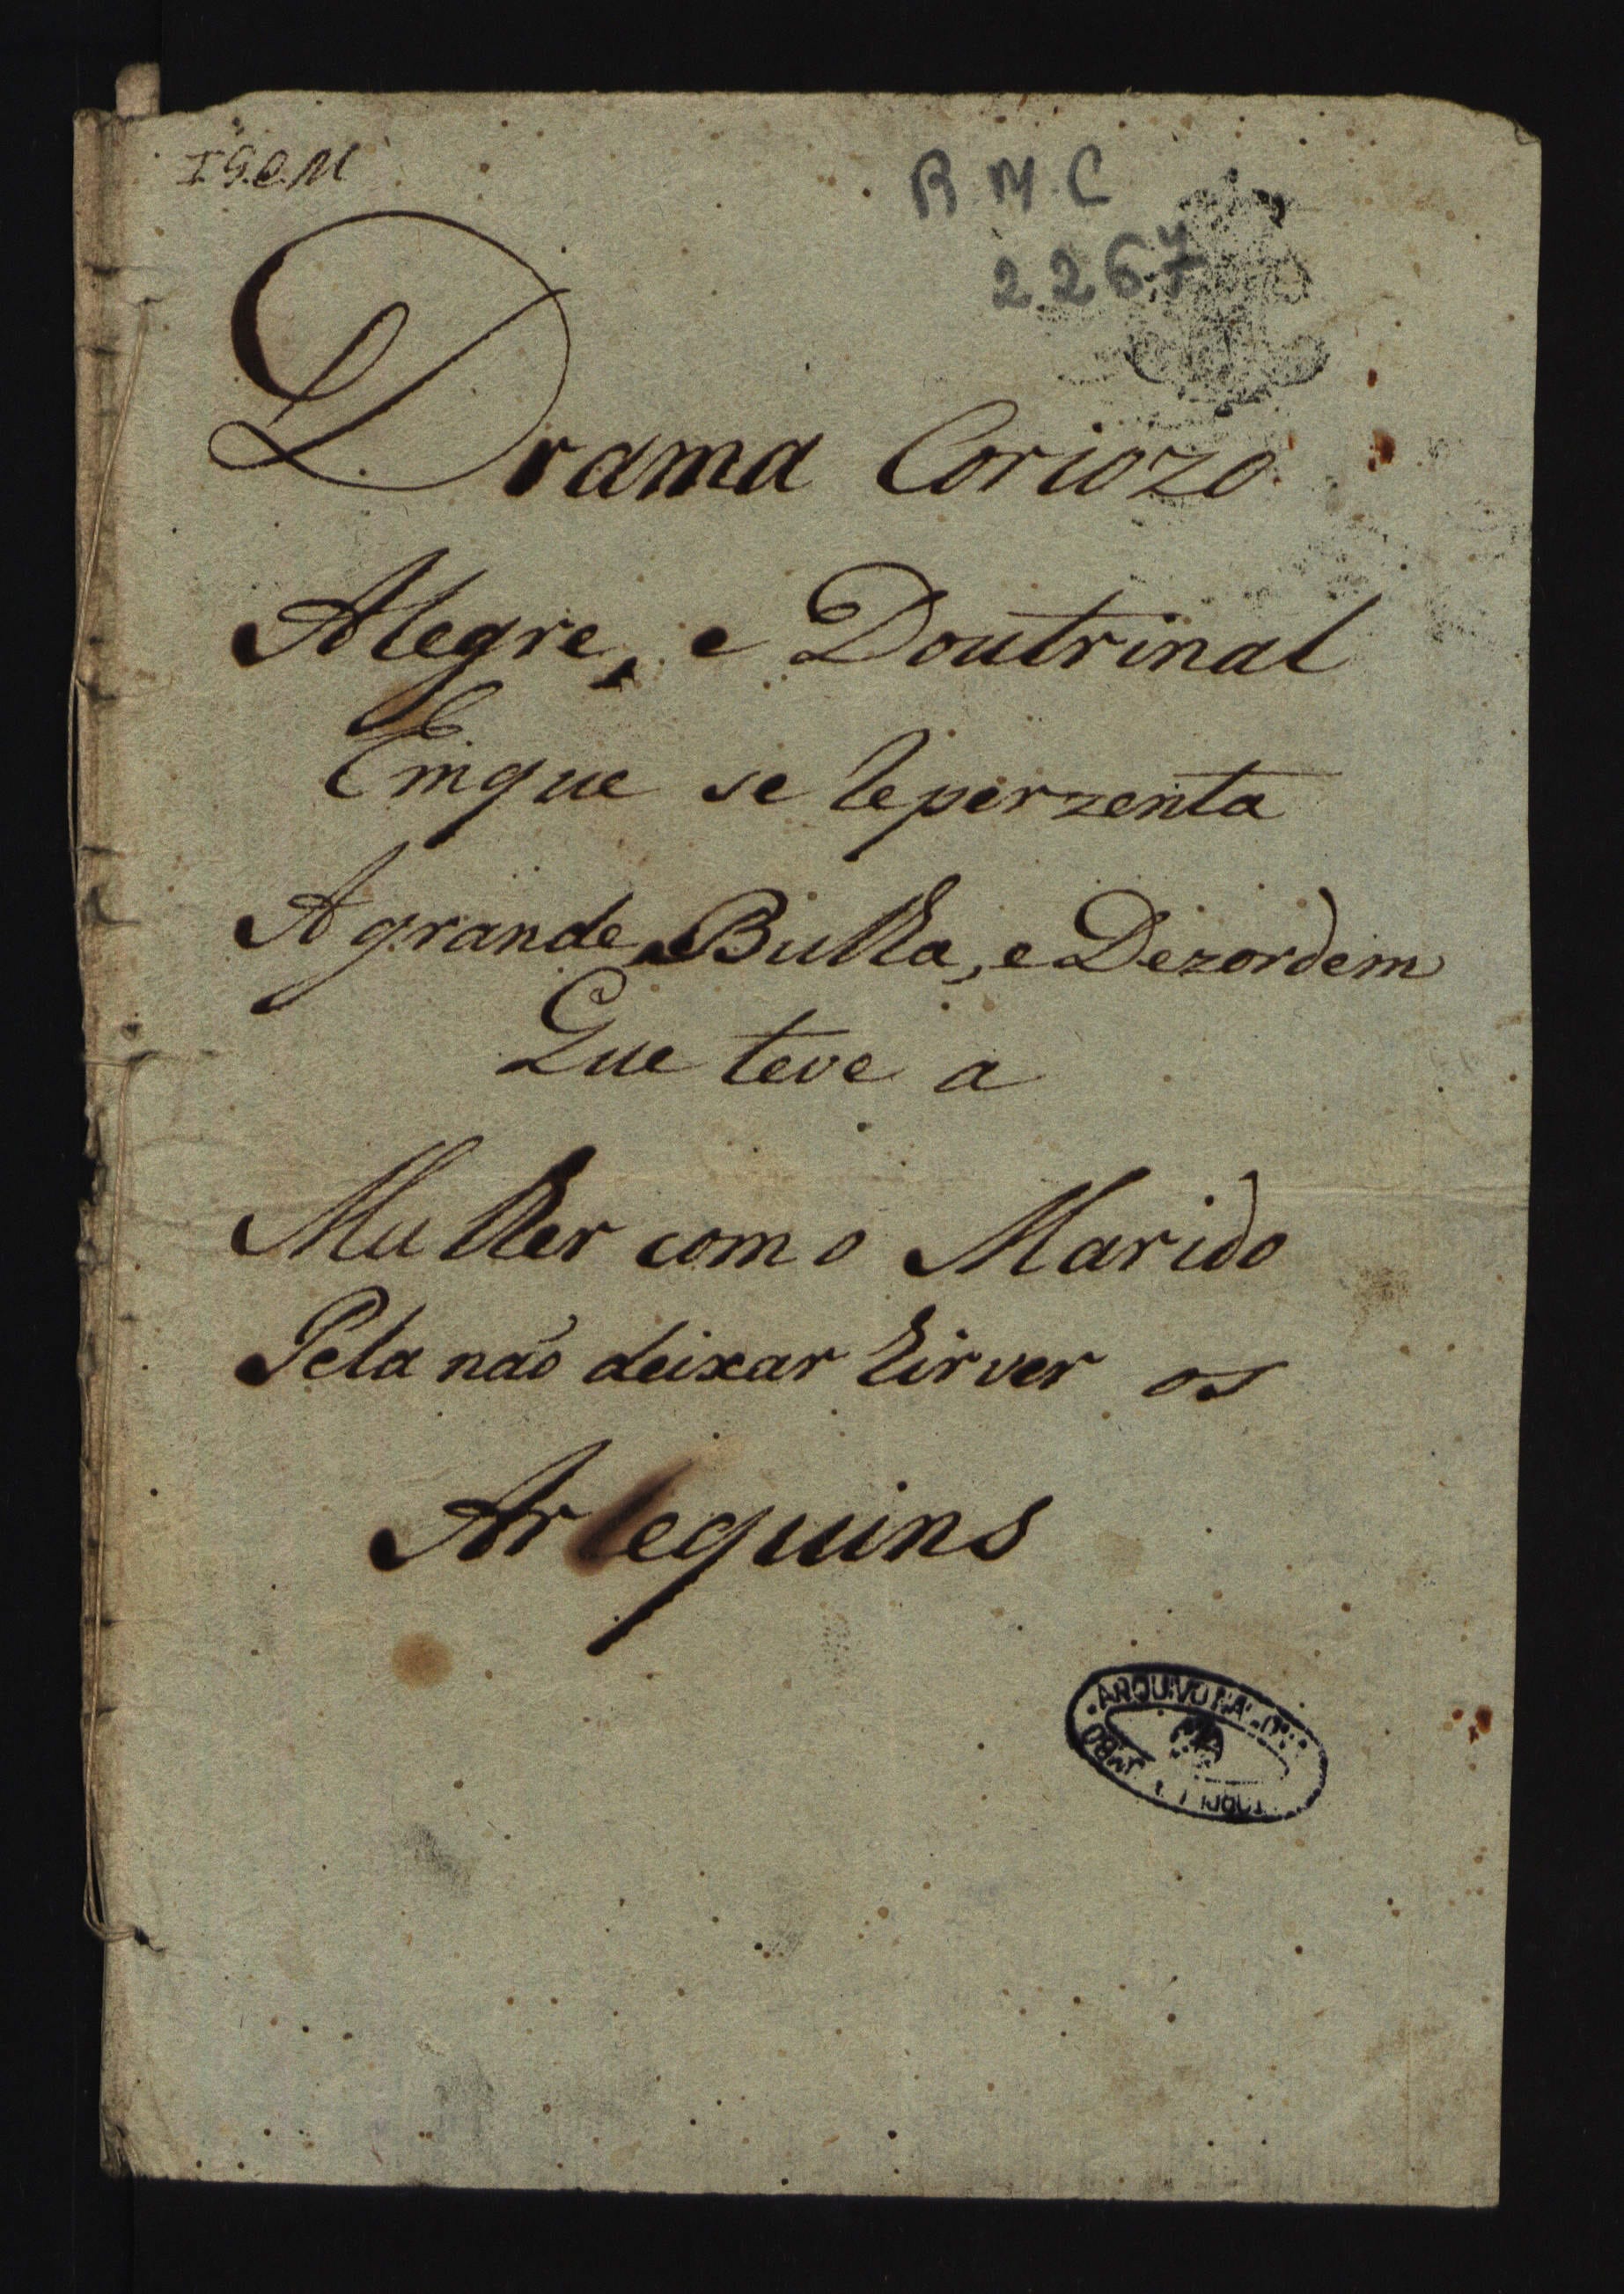 I G. C. M
R M. C
2267
Drama Coriozo
Alegre, e Doutrinal
Emque se Reperzenta
A grande Bulha, e Dezordem
Que teve a
Mulher com o Marido
Pela não deixar hir ver os
Arlequins
ARQUIVO NA
TOMBO